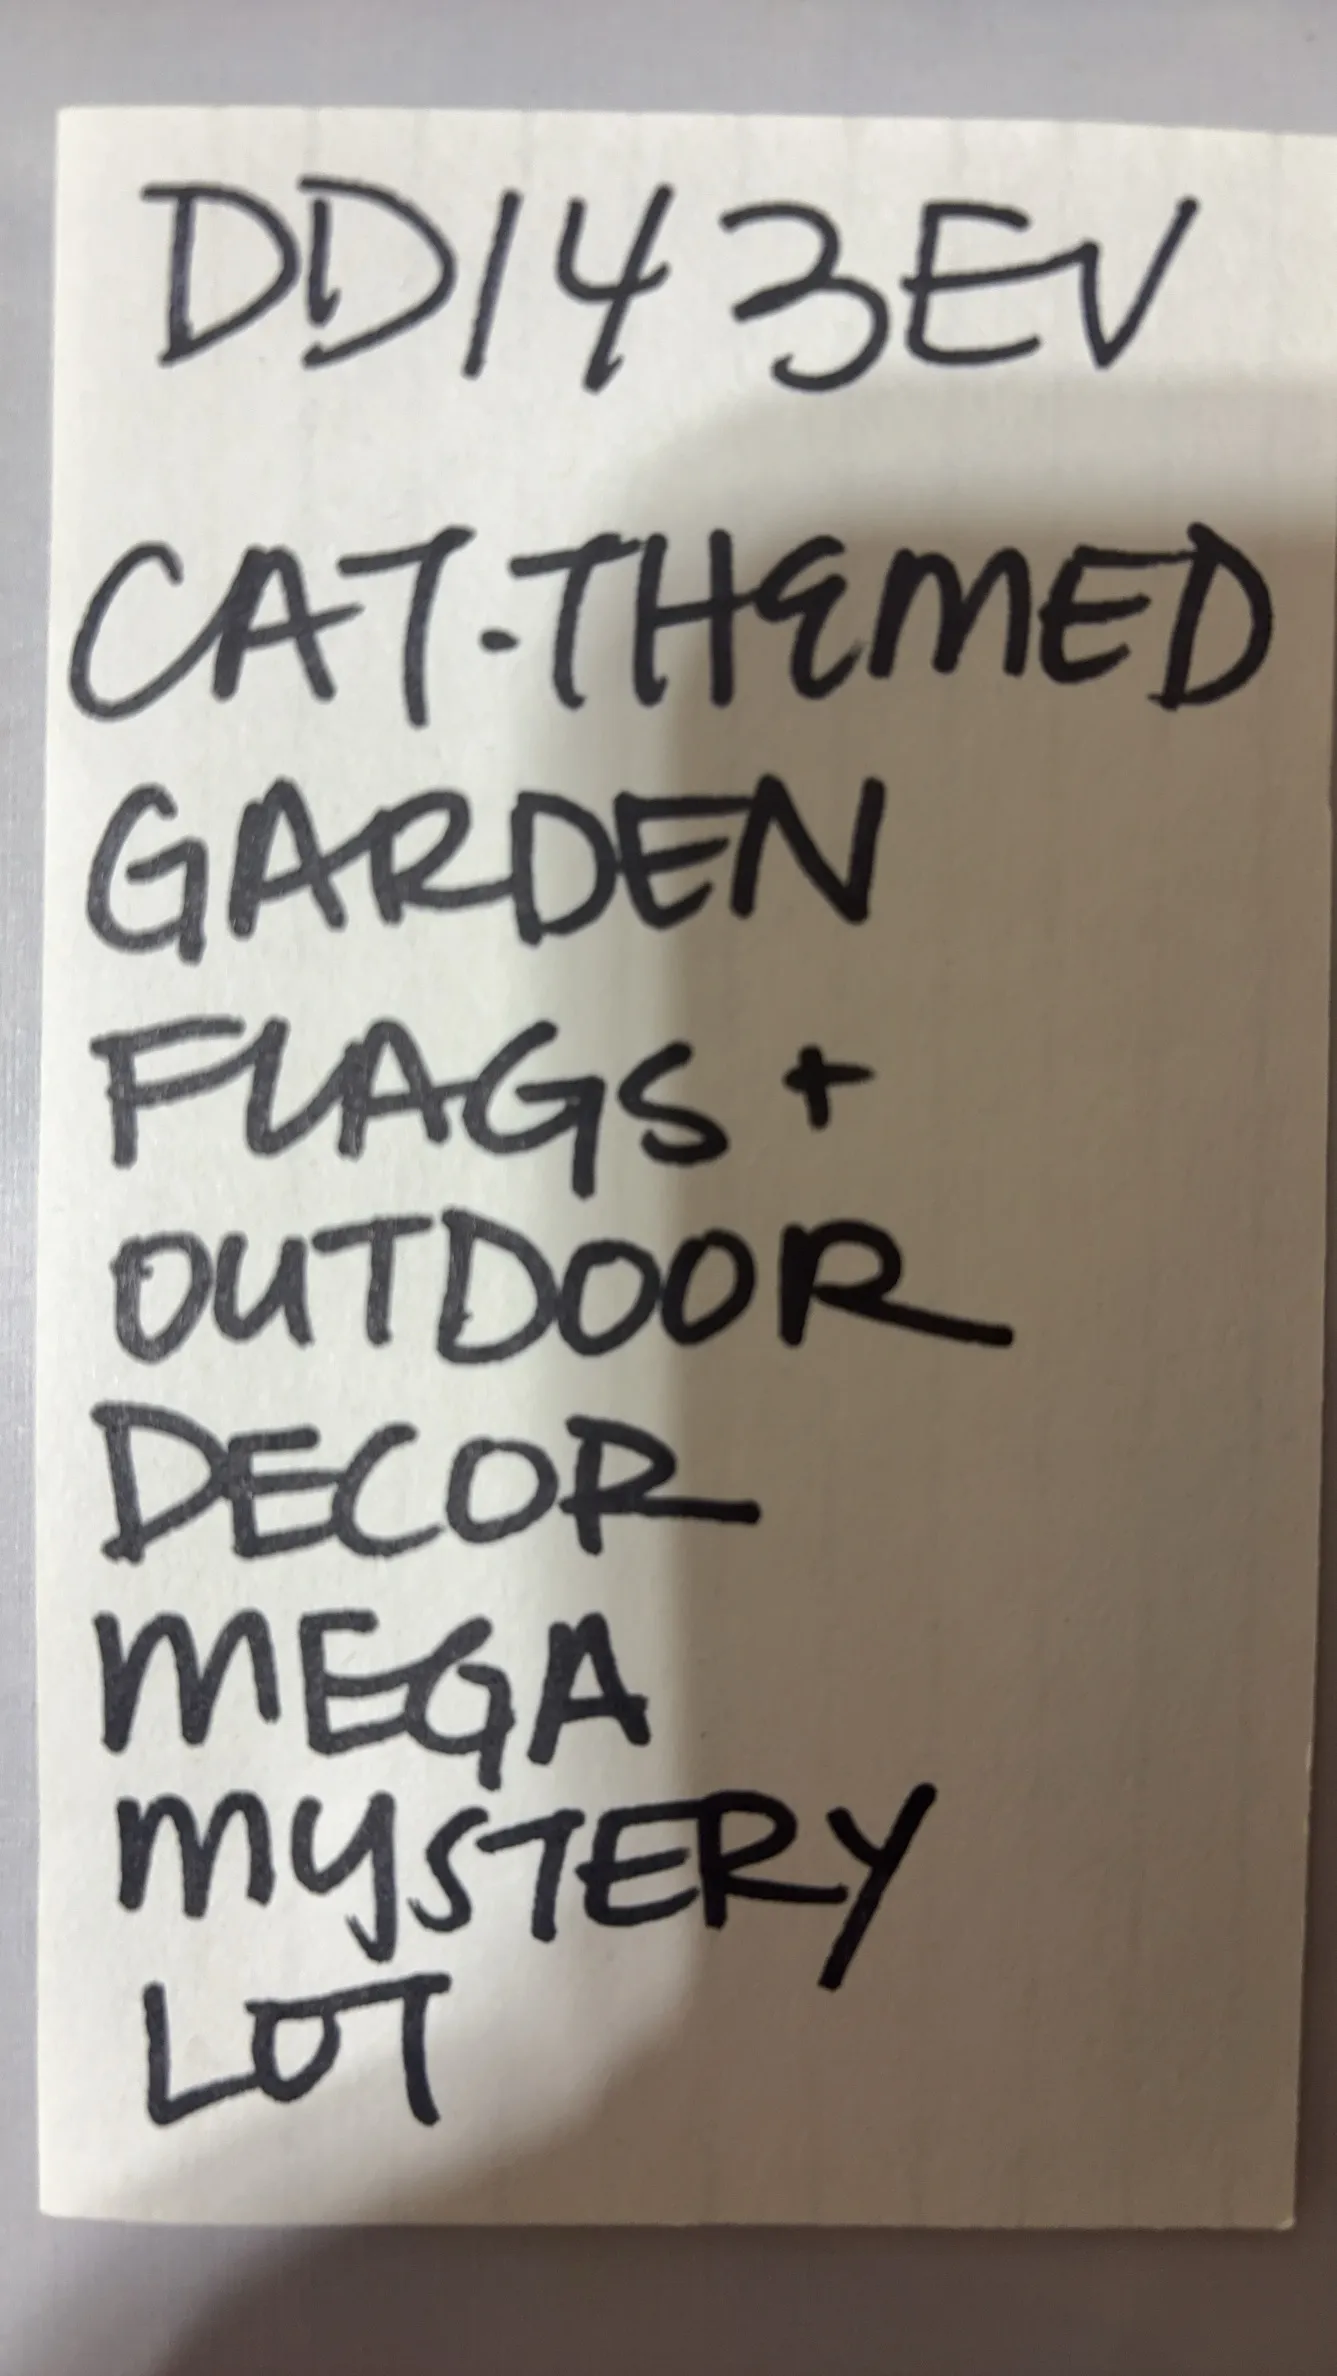 DD143EV
CAT-THEMED
GARDEN
FLAGS +
OUTDOOR
DECOR
MEGA
MYSTERY
LOT